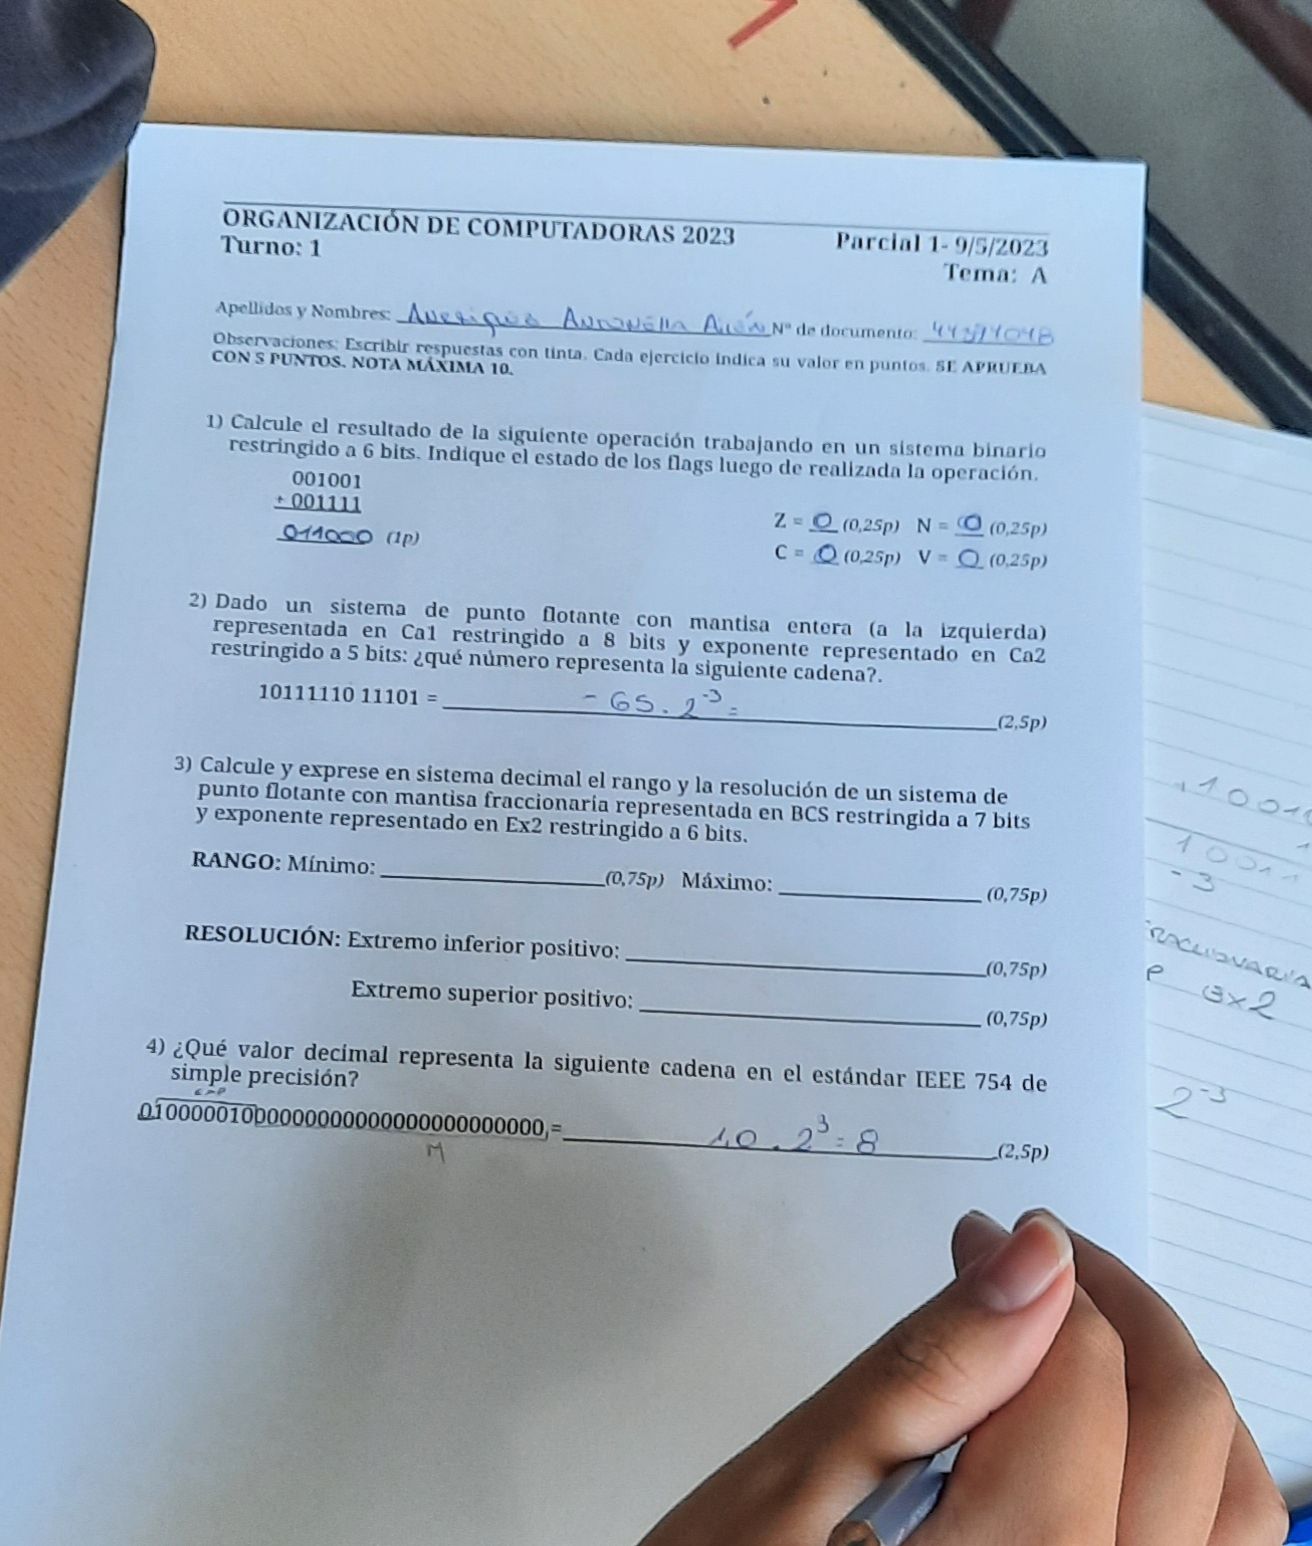 ORGANIZACIÓN DE COMPUTADORAS 2023
Parcial 1- 9/5/2023
Turno: 1
Tema: A
Apellidos y Nombres: Nº de documento:
Observaciones: Escribir respuestas con tinta. Cada ejercicio indica su valor en puntos. SE APRUEBA
CON 5 PUNTOS. NOTA MÁXIMA 10.
1) Calcule el resultado de la siguiente operación trabajando en un sistema binario
restringido a 6 bits. Indique el estado de los flags luego de realizada la operación.
001001
+ 001111
011000 (1p)
Z = 0 (0,25p) N = 0 (0,25p)
C = 0 (0,25p) V = 0 (0,25p)
2) Dado un sistema de punto flotante con mantisa entera (a la izquierda)
representada en Ca1 restringido a 8 bits y exponente representado en Ca2
restringido a 5 bits: ¿qué número representa la siguiente cadena?.
10111110 11101 = - 65 . 2⁻³ = (2,5p)
3) Calcule y exprese en sistema decimal el rango y la resolución de un sistema de
punto flotante con mantisa fraccionaria representada en BCS restringida a 7 bits
y exponente representado en Ex2 restringido a 6 bits.
RANGO: Mínimo: (0,75p) Máximo: (0,75p)
RESOLUCIÓN: Extremo inferior positivo: (0,75p)
Extremo superior positivo: (0,75p)
4) ¿Qué valor decimal representa la siguiente cadena en el estándar IEEE 754 de
simple precisión?
exp
01000001000000000000000000000000, = 1,0 . 2³ = 8 (2,5p)
M
- 3
Ex2
2⁻³